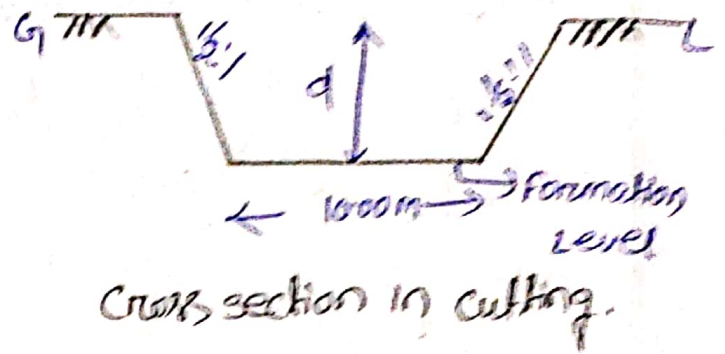 G L
1½:1 1½:1
d
10.00m
Formation
Level
Cross section in cutting.